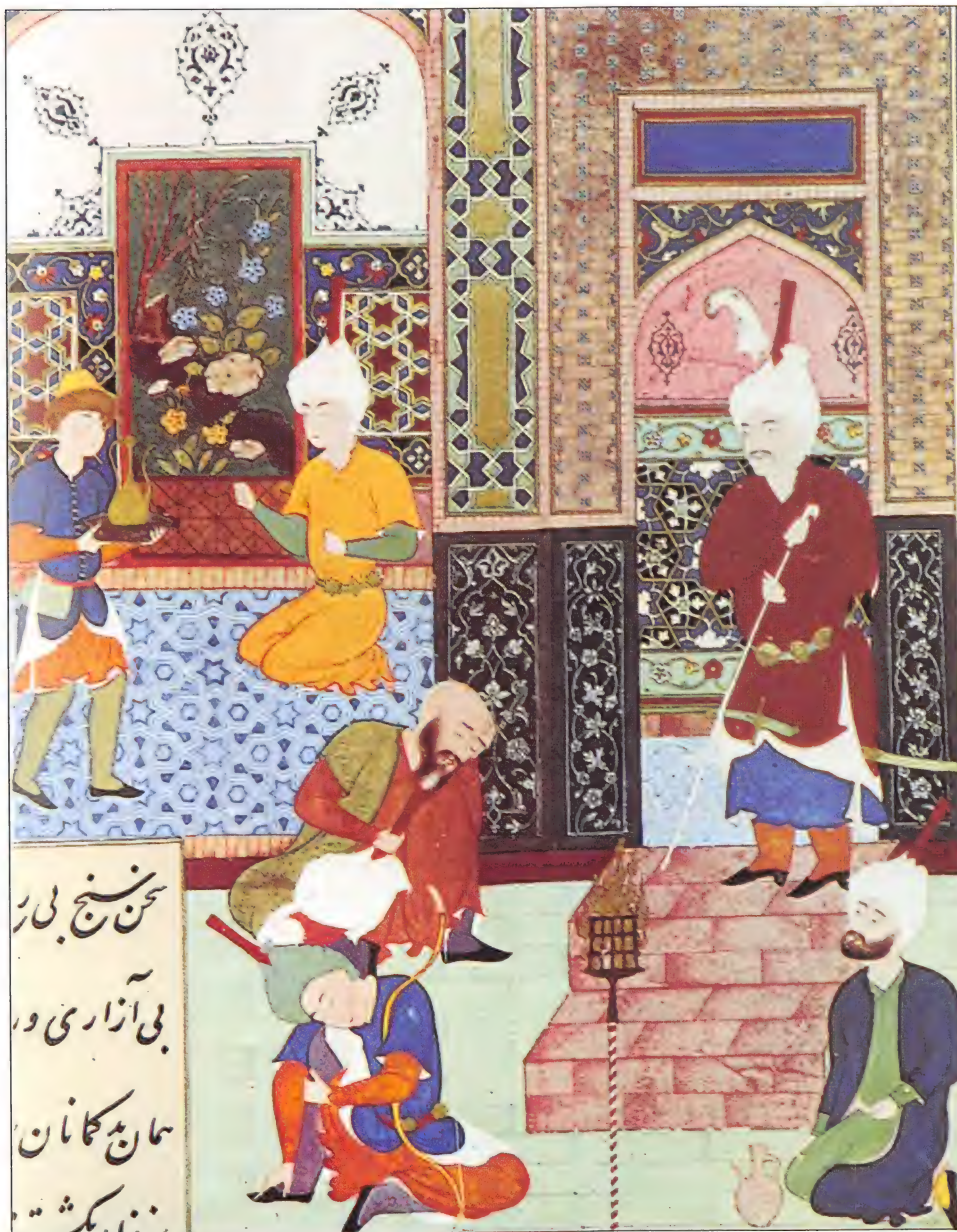 سخن سنج بی ر
بی آزاری ور
همان بد کمانان